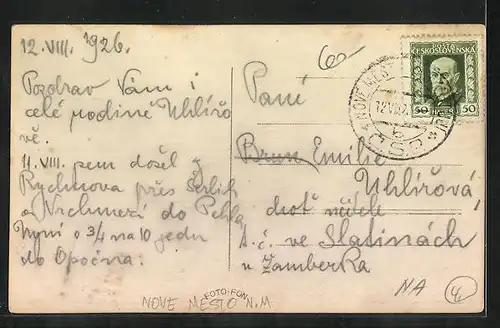 12. VIII. 1926.
Pozdrav Vám i
celé rodině Uhlířo
vě.
11. VIII. sem došel z
Rychnova přes Šerlih
a Vrchmezí do
Nyní o 3/4 na 10 jedu
do Opočna.
60
POŠTA
ČESKOSLOVENSKÁ
50 50
NOVÉ MĚSTO
ČSP
Paní
Emilie
Uhlířová
choť učitele
t. č. ve Slatinách
u Žamberka
FOTO-FON
NOVE MĚSTO N.M.
NA
4